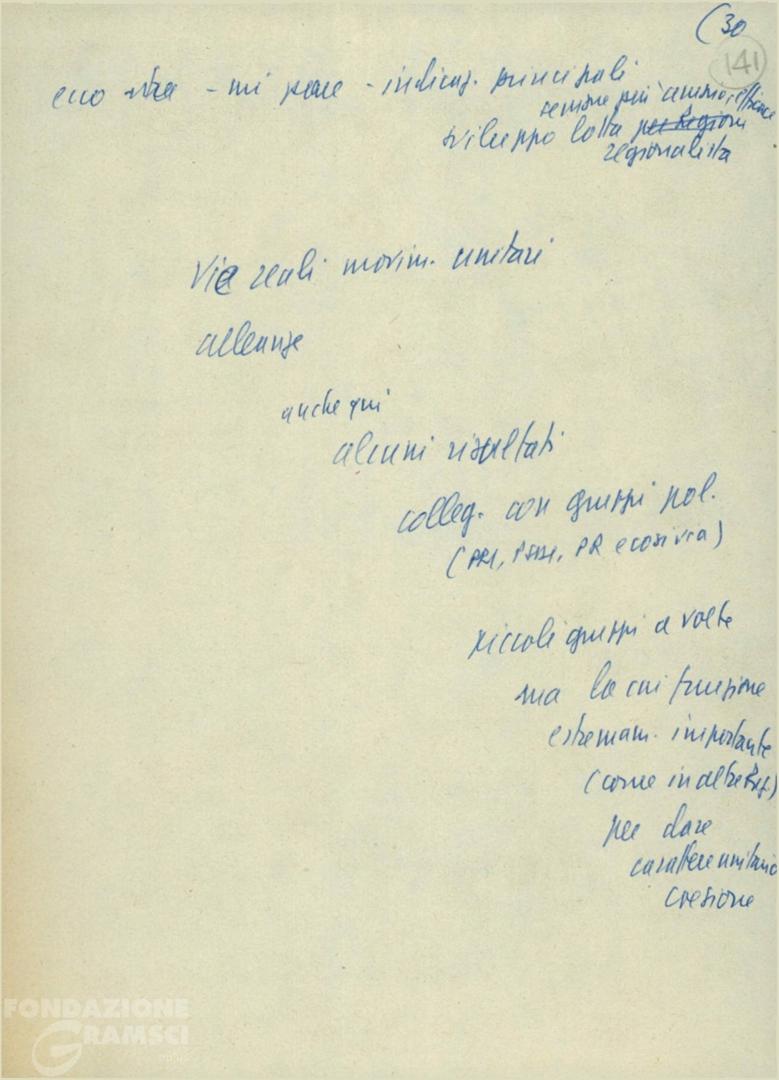 (30
141
ecco - mi pare - indicaz. principali
sempre più ampio, efficace
sviluppo lotta per Regioni
regionalista
Vie reali movim. unitari
alleanze
anche qui
alcuni risultati
colleg. con gruppi pol.
(PRI, PSDI, PR e così via)
piccoli gruppi a volte
ma la cui funzione
estremam. importante
(come in altre Reg.)
per dare
carattere unitario
coesione
FONDAZIONE
GRAMSCI